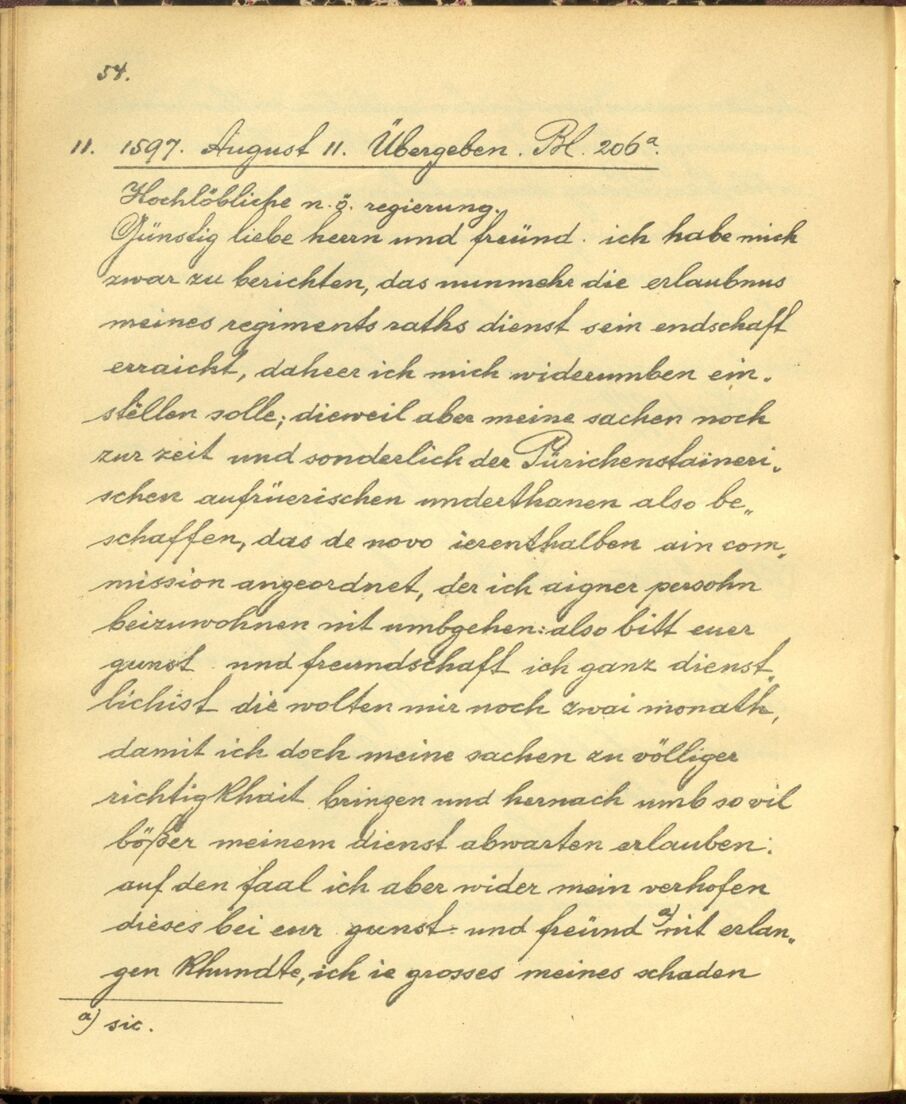 54.
11. 1597. August 11. Übergeben. Bl. 206a.
Hochlöbliche n. ö. regierung.
Günstig liebe herrn und freünd. ich habe mich
zwar zu berichten, das nunmehr die erlaubnus
meines regiments raths dienst sein endschaft
erraicht, daheer ich mich widerumben ein„
stellen solle; dieweil aber meine sachen noch
zur zeit und sonderlich der Pürichenstaineri„
schen aufrüerischen underthanen also be„
schaffen, das de novo ierenthalben ain com„
mission angeordnet, der ich aigner persohn
beizuwohnen nit umbgehen: also bitt euer
gunst und freundschaft ich ganz dienst„
lichist die wolten mir noch zwai monath,
damit ich doch meine sachen zu völliger
richtigkhait bringen und hernach umb so vil
bößer meinem dienst abwarten erlauben:
auf den faal ich aber wider mein verhofen
dieses bei eur gunst und freünd a) nit erlan„
gen khundte, ich ie grosses meines schaden
a) sic.